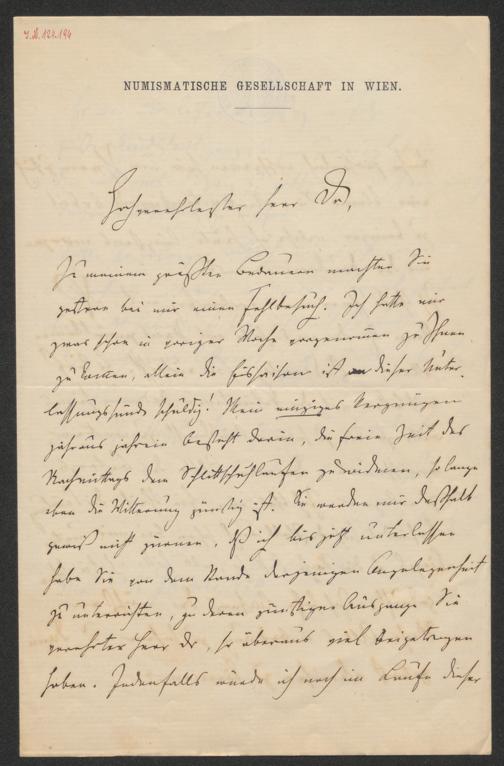 J.N.124.194
NUMISMATISCHE GESELLSCHAFT IN WIEN.
Hochverehrtester Herr Dr,
Zu meinem größten Bedauern machten Sie
gestern bei mir einen Fehlbesuch. Ich hatte mir
zwar schon in voriger Woche vorgenommen zu Ihnen
zu kommen, allein die Eissaison ist an dieser Unter-
lassungssünde schuldig! Mein einziges Vergnügen
jahraus jahrein besteht darin, die freie Zeit des
Nachmittags dem Schlittschuhlaufen zu widmen, so lange
eben die Witterung günstig ist. Sie werden mir deßhalb
gewiß nicht zürnen, daß ich bis jetzt unterlassen
habe Sie von dem Stande derjenigen Angelegenheit
zu unterrichten, zu deren günstigem Ausgange Sie
verehrter Herr Dr, so überaus viel beigetragen
haben. Jedenfalls würde ich noch im Laufe dieser